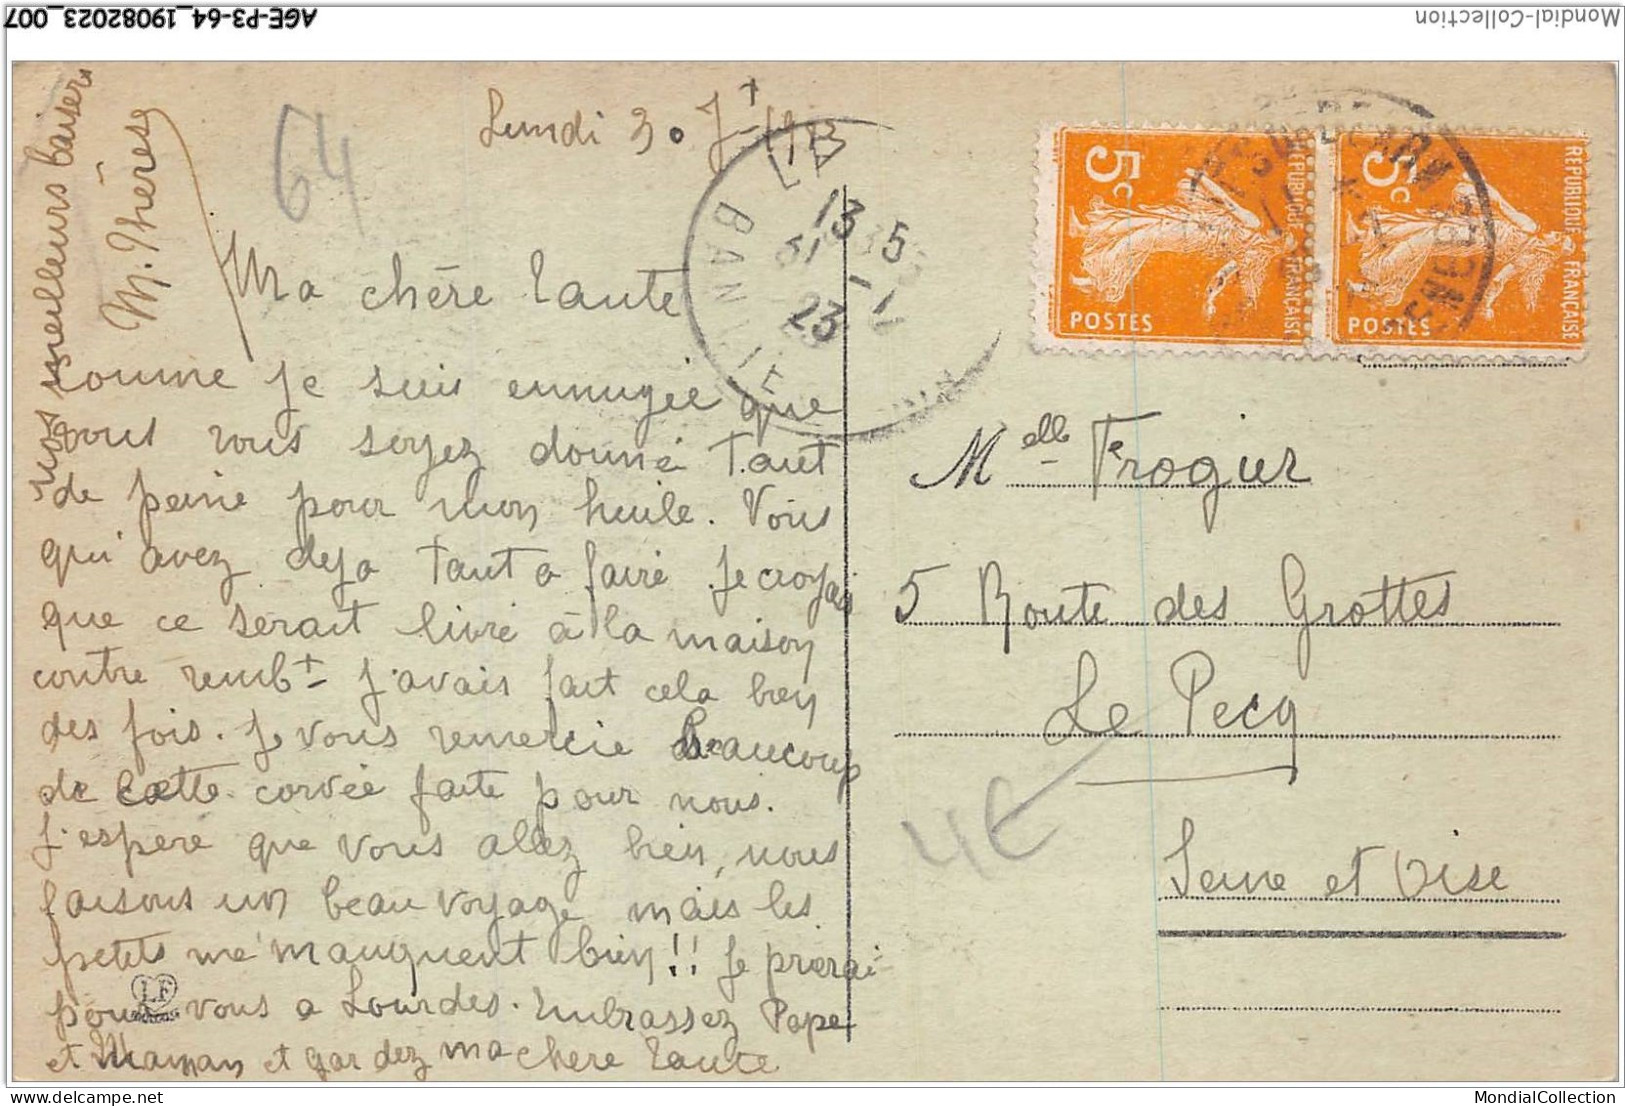 AGE-P3-64_19082023_007
Mondial-Collection
Lundi 30 J-t 1923
64
Ma chère Tante
comme je suis ennuyée que
vous vous soyez donné tant
de peine pour mon huile. Vous
qui avez deja tant a faire je croyais
que ce serait livré à la maison
contre rembt j'avais fait cela bien
des fois. Je vous remercie Beaucoup
de cette corvée faite pour nous.
J'espère que vous allez bien, nous
faisons un beau voyage mais les
petits me manquent bien!! Je prierai
pour vous a Lourdes. Embrassez Papa
et Maman et gardez ma chère Tante
nos meilleurs baisers
M. Thérèse
LF
13 5
31 -1
23
BANLIEUE
5c
POSTES
REPUBLIQUE FRANÇAISE
5c
POSTES
REPUBLIQUE FRANÇAISE
Melle Frogier
5 Route des Grottes
Le Pecq
4€
Seine et Oise
MondialCollection